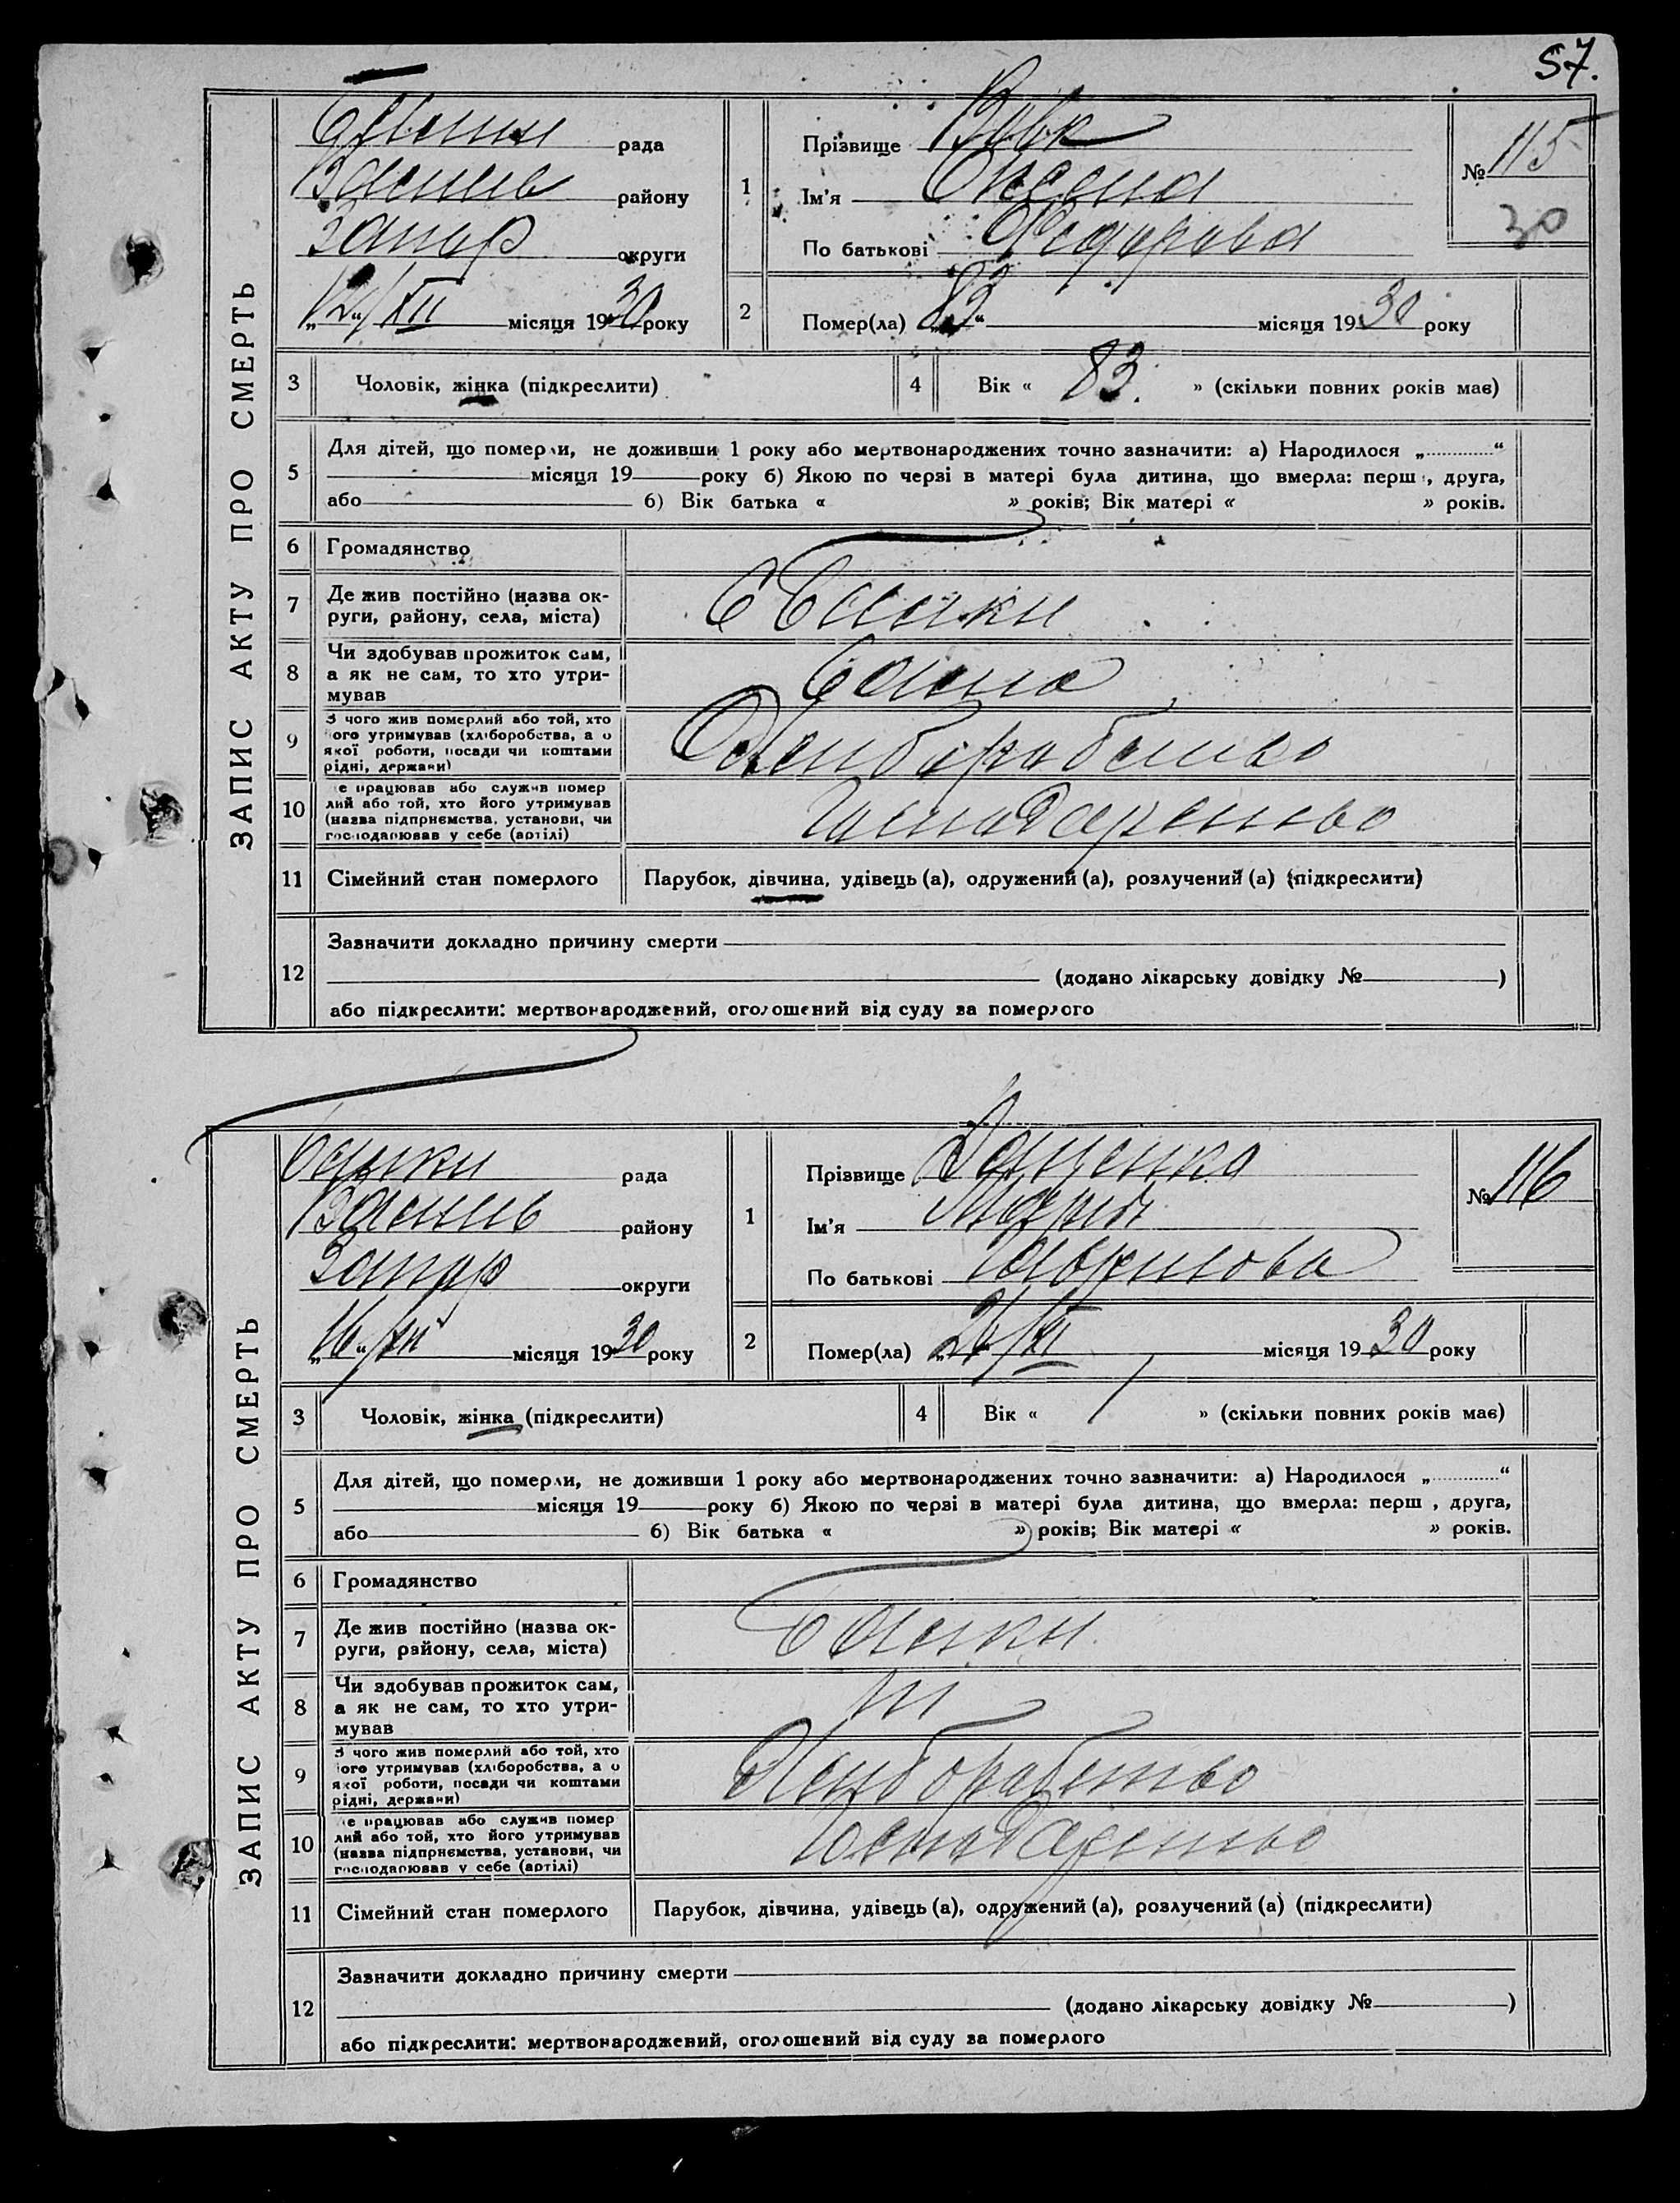 57.
ЗАПИС АКТУ ПРО СМЕРТЬ
рада
району
Запор округи
„12“/XII місяця 1930 року
1
Прізвище Вовк
Ім'я Оксана
По батькові Федорова
№ 115
30
2
Помер(ла) „ “ місяця 1930 року
3
Чоловік, жінка (підкреслити)
4
Вік « 83. » (скільки повних років має)
5
Для дітей, що померли, не доживши 1 року або мертвонароджених точно зазначити: а) Народилося „ “
місяця 19 року б) Якою по черзі в матері була дитина, що вмерла: перш , друга,
або б) Вік батька « » років; Вік матері « » років.
6
Громадянство
7
Де жив постійно (назва ок-
руги, району, села, міста)
8
Чи здобував прожиток сам,
а як не сам, то хто утри-
мував
9
З чого жив померлий або той, хто
його утримував (хліборобства, а о
якої роботи, посади чи коштами
рідні, держави)
10
е працював або служив помер
лий або той, хто його утримував
(назва підприємства, установи, чи
господарював у себе (артілі)
11
Сімейний стан померлого
Парубок, дівчина, удівець (а), одружений (а), розлучений (а) (підкреслити)
12
Зазначити докладно причину смерти
(додано лікарську довідку № )
або підкреслити: мертвонароджений, оголошений від суду за померлого
ЗАПИС АКТУ ПРО СМЕРТЬ
рада
району
Запор округи
„16“/XII місяця 1930 року
1
Прізвище
Ім'я Марія
По батькові
№ 116
2
Помер(ла) місяця 1930 року
3
Чоловік, жінка (підкреслити)
4
Вік « 1 » (скільки повних років має)
5
Для дітей, що померли, не доживши 1 року або мертвонароджених точно зазначити: а) Народилося „ “
місяця 19 року б) Якою по черзі в матері була дитина, що вмерла: перш , друга,
або б) Вік батька « » років; Вік матері « » років.
6
Громадянство
7
Де жив постійно (назва ок-
руги, району, села, міста)
8
Чи здобував прожиток сам,
а як не сам, то хто утри-
мував
9
З чого жив померлий або той, хто
його утримував (хліборобства, а о
якої роботи, посади чи коштами
рідні, держави)
10
е працював або служив помер
лий або той, хто його утримував
(назва підприємства, установи, чи
господарював у себе (артілі)
11
Сімейний стан померлого
Парубок, дівчина, удівець (а), одружений (а), розлучений (а) (підкреслити)
12
Зазначити докладно причину смерти
(додано лікарську довідку № )
або підкреслити: мертвонароджений, оголошений від суду за померлого